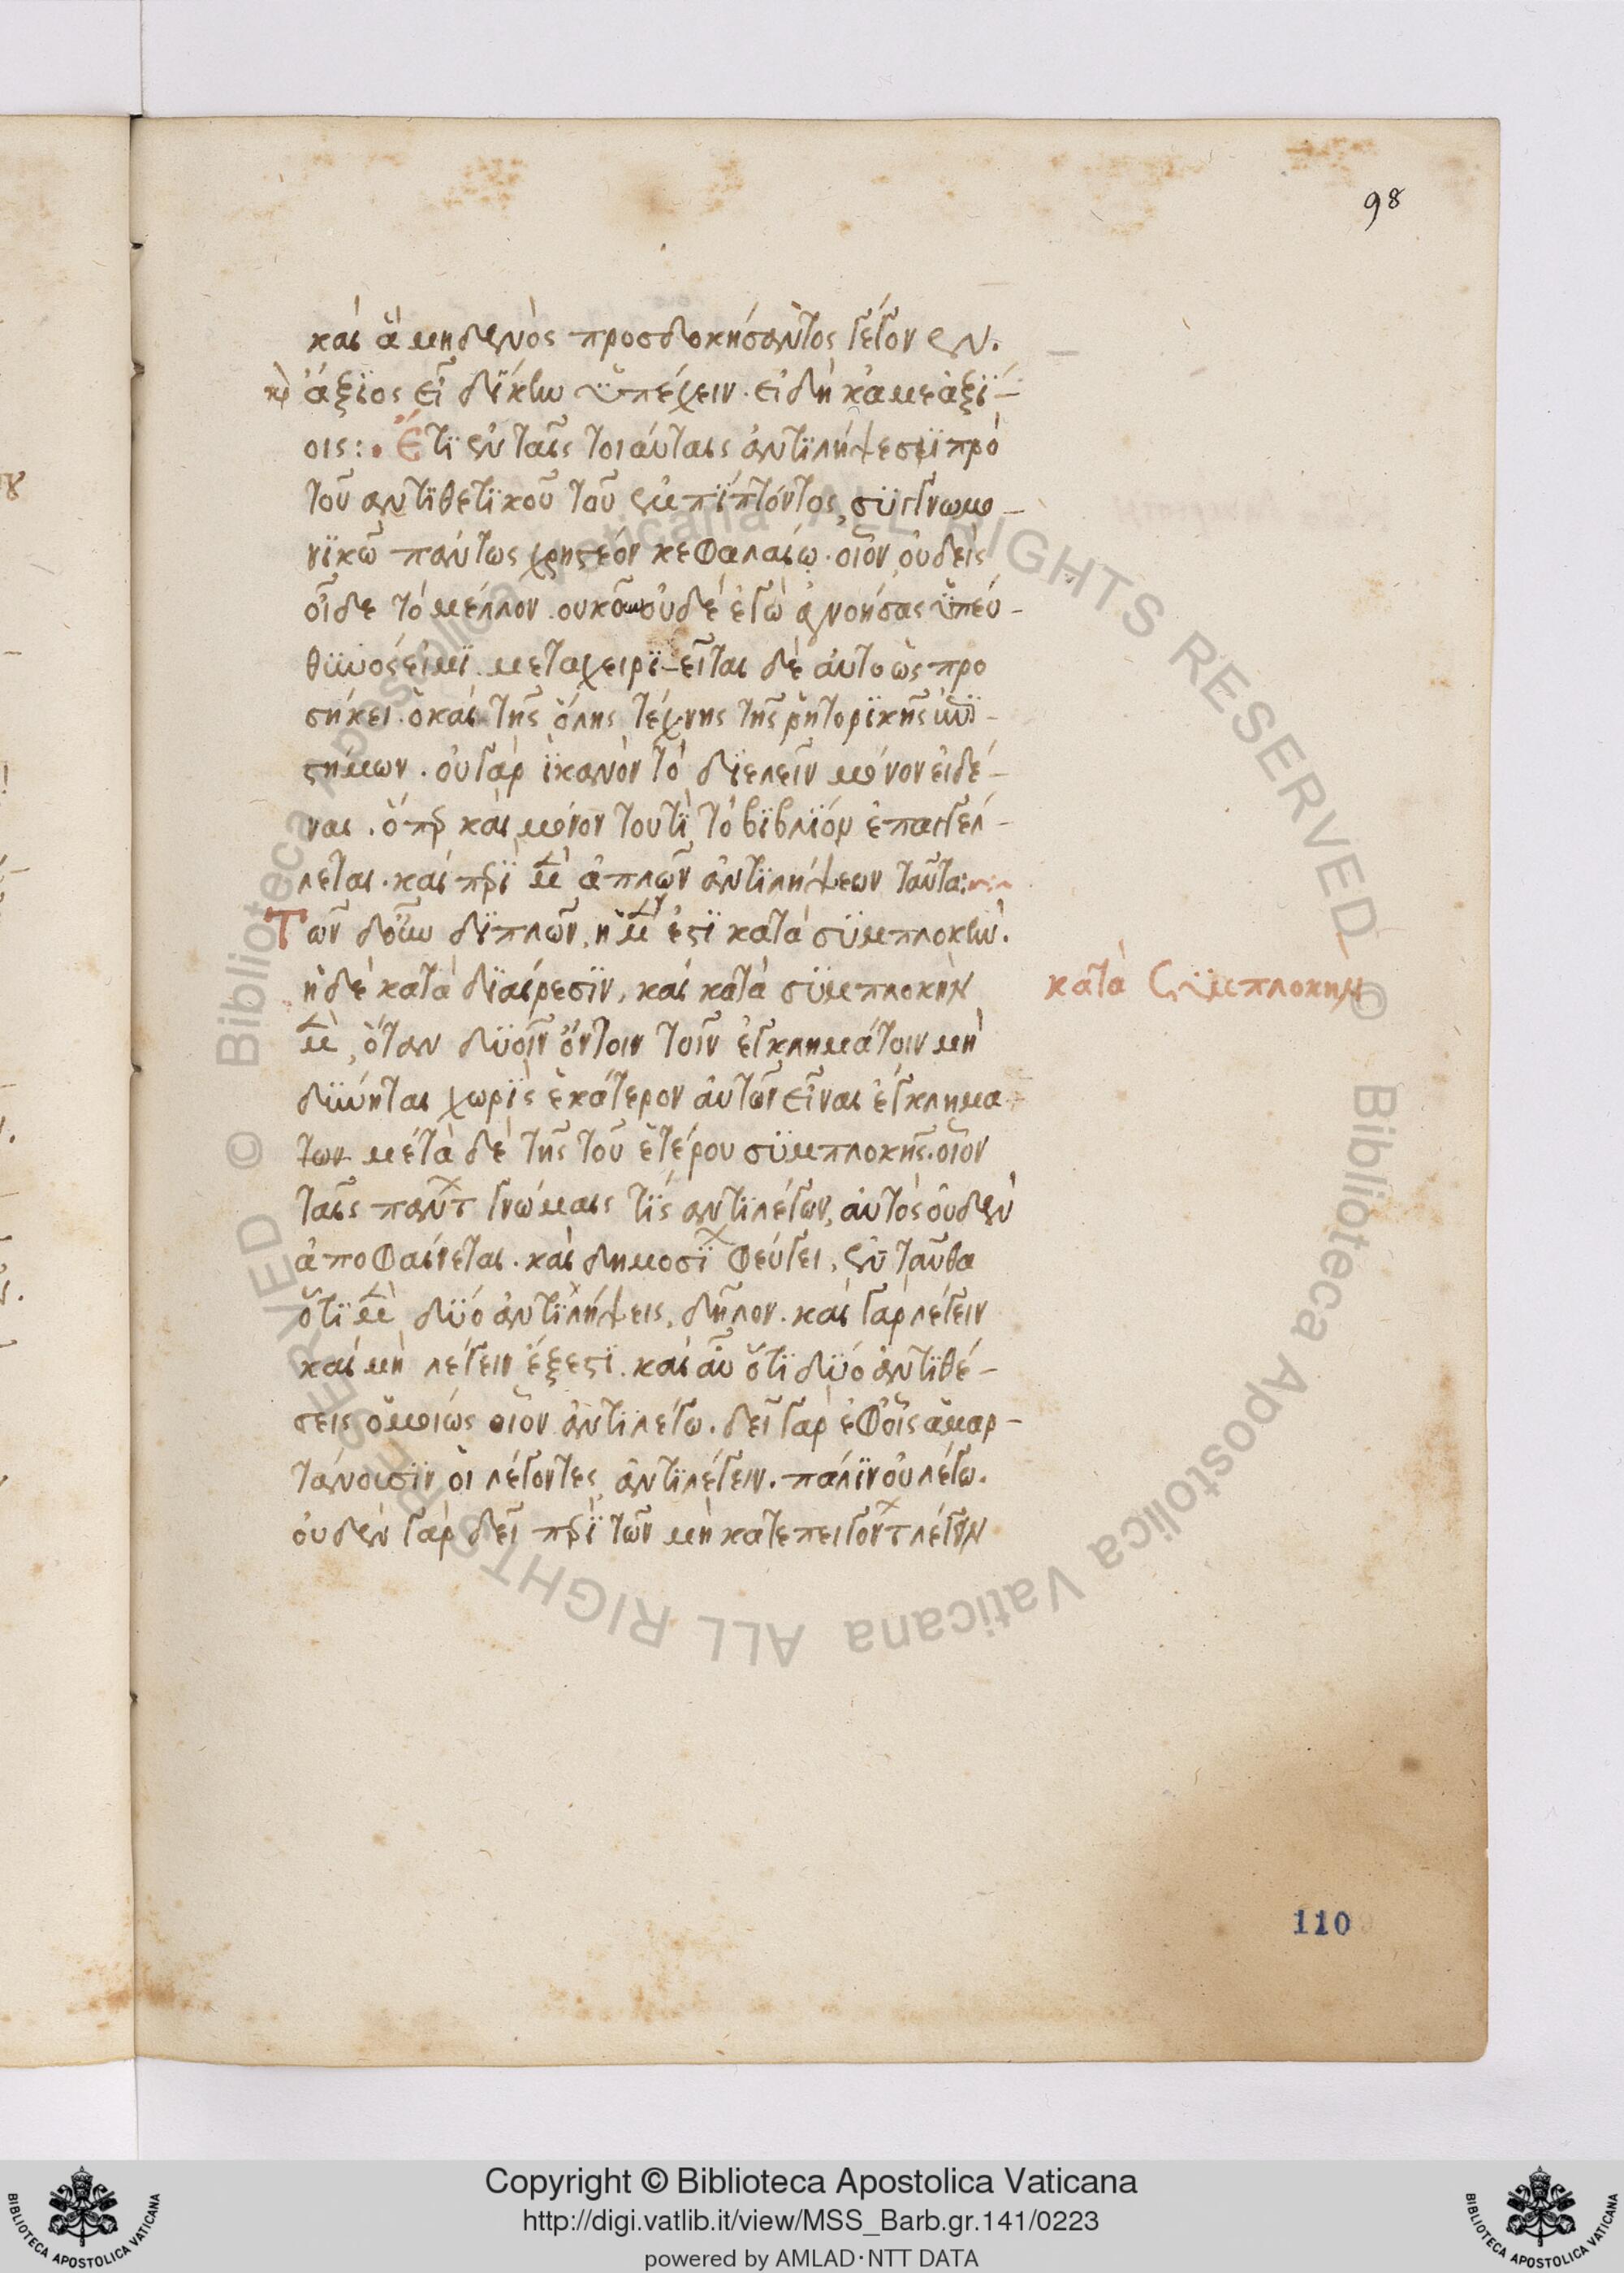 98
καὶ ἃ μηδενὸς προσδοκήσαντος γέγονεν.
κὴ ἄξϊος εἶ δΐκην ϋπέχειν. εἰ δὴ κἀμὲ ἀξϊ-
οῖς: Ἔτϊ ἐν ταῖς τοιαύταις ἀντϊλήψεσϊ πρὸ
τοῦ ἀντϊθετϊκοῦ τοῦ ἐμπΐπτοντος, συγγνωμο-
νϊκῶ πάντως χρηστέον κεφαλαίω. οἷον, οὐδεὶς
οἶδε τὸ μέλλον. οὐκοῦν οὐδὲ ἐγὼ ἀγνοήσας ϋπεύ-
θϋνός εἰμϊ. μεταχειρϊεῖται δὲ αὐτὸ ὡς προ
σήκει. ὁ καὶ τῆς ὅλης τέχνης τῆς ῥητορϊκῆς ἐπϊ-
στήμων. οὐ γὰρ ἱκανὸν τὸ δϊελεῖν μόνον εἰδέ-
ναι. ὅπερ καὶ μόνον τουτὶ τὸ βϊβλϊόν ἐπαγγέλ-
λεται. καὶ περὶ μὲν ἁπλῶν ἀντϊλήψεων ταῦτα:
Τῶν δ' οὖν δϊπλῶν, ἡ μέν ἐστϊ κατὰ σϋμπλοκήν.
ἡ δὲ κατὰ δϊαίρεσϊν, καὶ κατὰ σϋμπλοκὴν
κατὰ Σϋμπλοκην
μὲν, ὅταν δϋοῖν ὄντοιν τοῖν ἐγκλημάτοιν μὴ
δϋνηται χωρὶς ἑκάτερον αὐτῶν εἶναι ἔγκλημα
των μετὰ δὲ τῆς τοῦ ἑτέρου σϋμπλοκῆς. οἷον
ταῖς πάντων γνώμαις τϊς ἀντϊλέγων, αὐτὸς οὐδὲν
ἀποφαίνεται. καὶ δημοσίων φεύγει, ἐνταῦθα
ὅτϊ μὲν δϋό ἀντϊλήψεις, δῆλον. καὶ γὰρ λέγειν
καὶ μὴ λέγειν ἔξεστϊ. καὶ αὖ ὅτϊ δϋό ἀντϊθέ-
σεις ὁμοίως οἷον ἀντϊλέγω. δεῖ γὰρ ἐφ' οἷς ἁμαρ-
τάνουσϊν οἱ λέγοντες ἀντϊλέγειν. πάλϊν οὐ λέγω.
οὐδὲν γὰρ δεῖ περὶ τῶν μὴ κατεπειγόντων λέγειν
110
Copyright © Biblioteca Apostolica Vaticana
http://digi.vatlib.it/view/MSS_Barb.gr.141/0223
powered by AMLAD·NTT DATA
BIBLIOTECA APOSTOLICA VATICANA
BIBLIOTECA APOSTOLICA VATICANA
© Biblioteca Apostolica Vaticana ALL RIGHTS RESERVED © Biblioteca Apostolica Vaticana ALL RIGHTS RESERVED